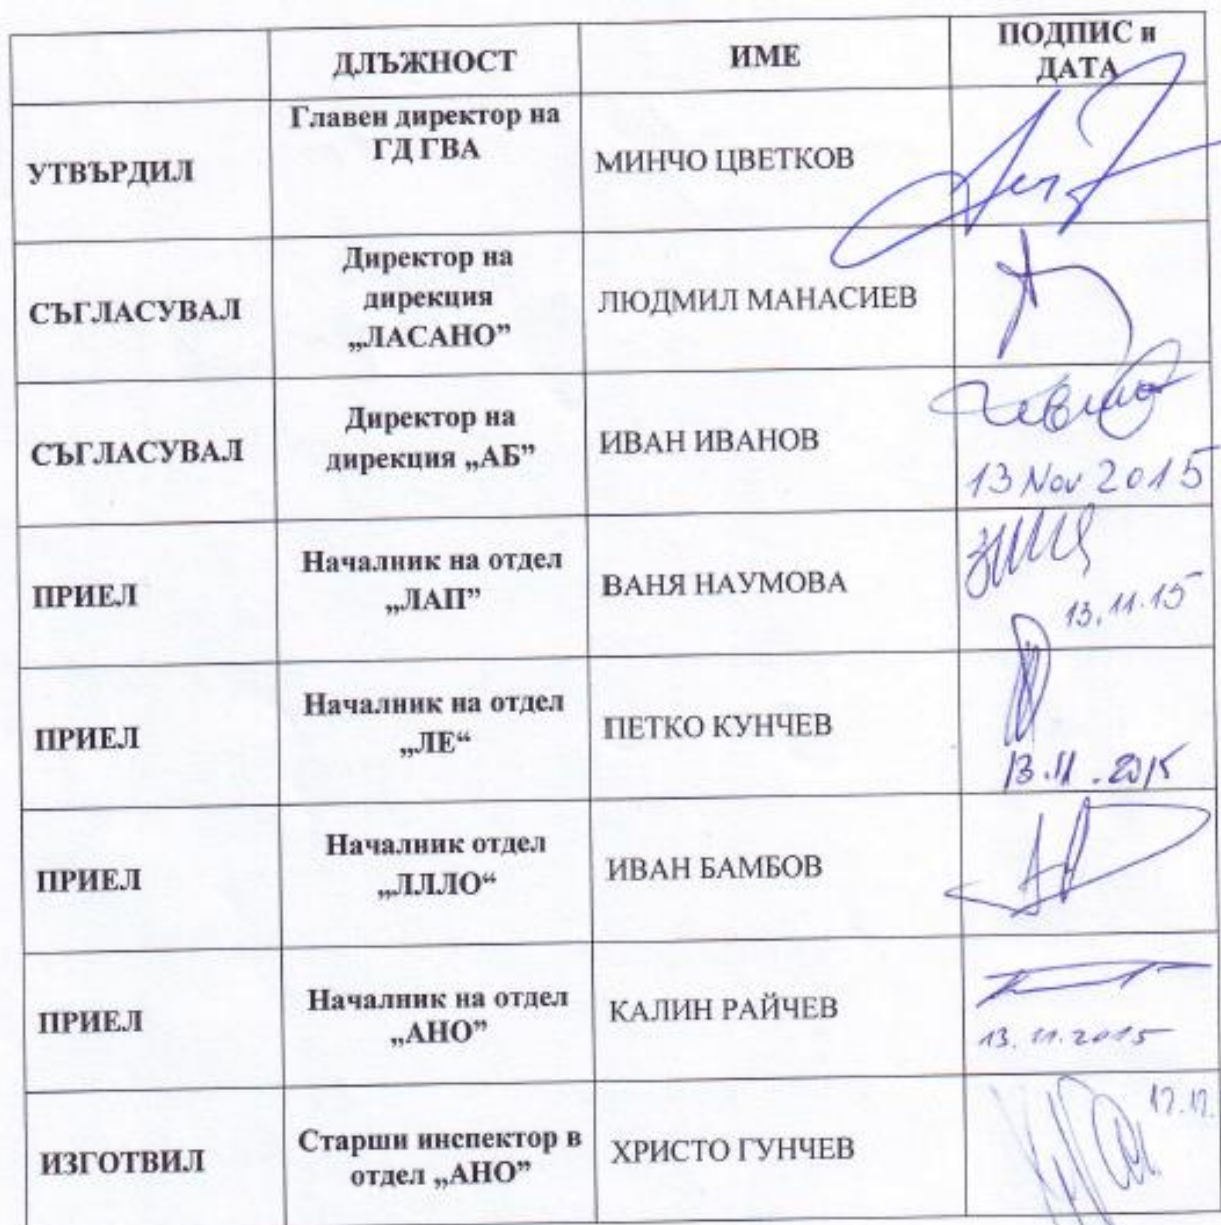 ДЛЪЖНОСТ ИМЕ ПОДПИС и
ДАТА
УТВЪРДИЛ Главен директор на
ГД ГВА
МИНЧО ЦВЕТКОВ
СЪГЛАСУВАЛ Директор на
дирекция
„ЛАСАНО”
ЛЮДМИЛ МАНАСИЕВ
СЪГЛАСУВАЛ Директор на
дирекция „АБ”
ИВАН ИВАНОВ
13 Nov 2015
ПРИЕЛ Началник на отдел
„ЛАП”
ВАНЯ НАУМОВА
13.11.15
ПРИЕЛ Началник на отдел
„ЛЕ“
ПЕТКО КУНЧЕВ
13.11.2015
ПРИЕЛ Началник отдел
„ЛЛЛО“
ИВАН БАМБОВ
ПРИЕЛ Началник на отдел
„АНО”
КАЛИН РАЙЧЕВ
13.11.2015
ИЗГОТВИЛ Старши инспектор в
отдел „АНО”
ХРИСТО ГУНЧЕВ